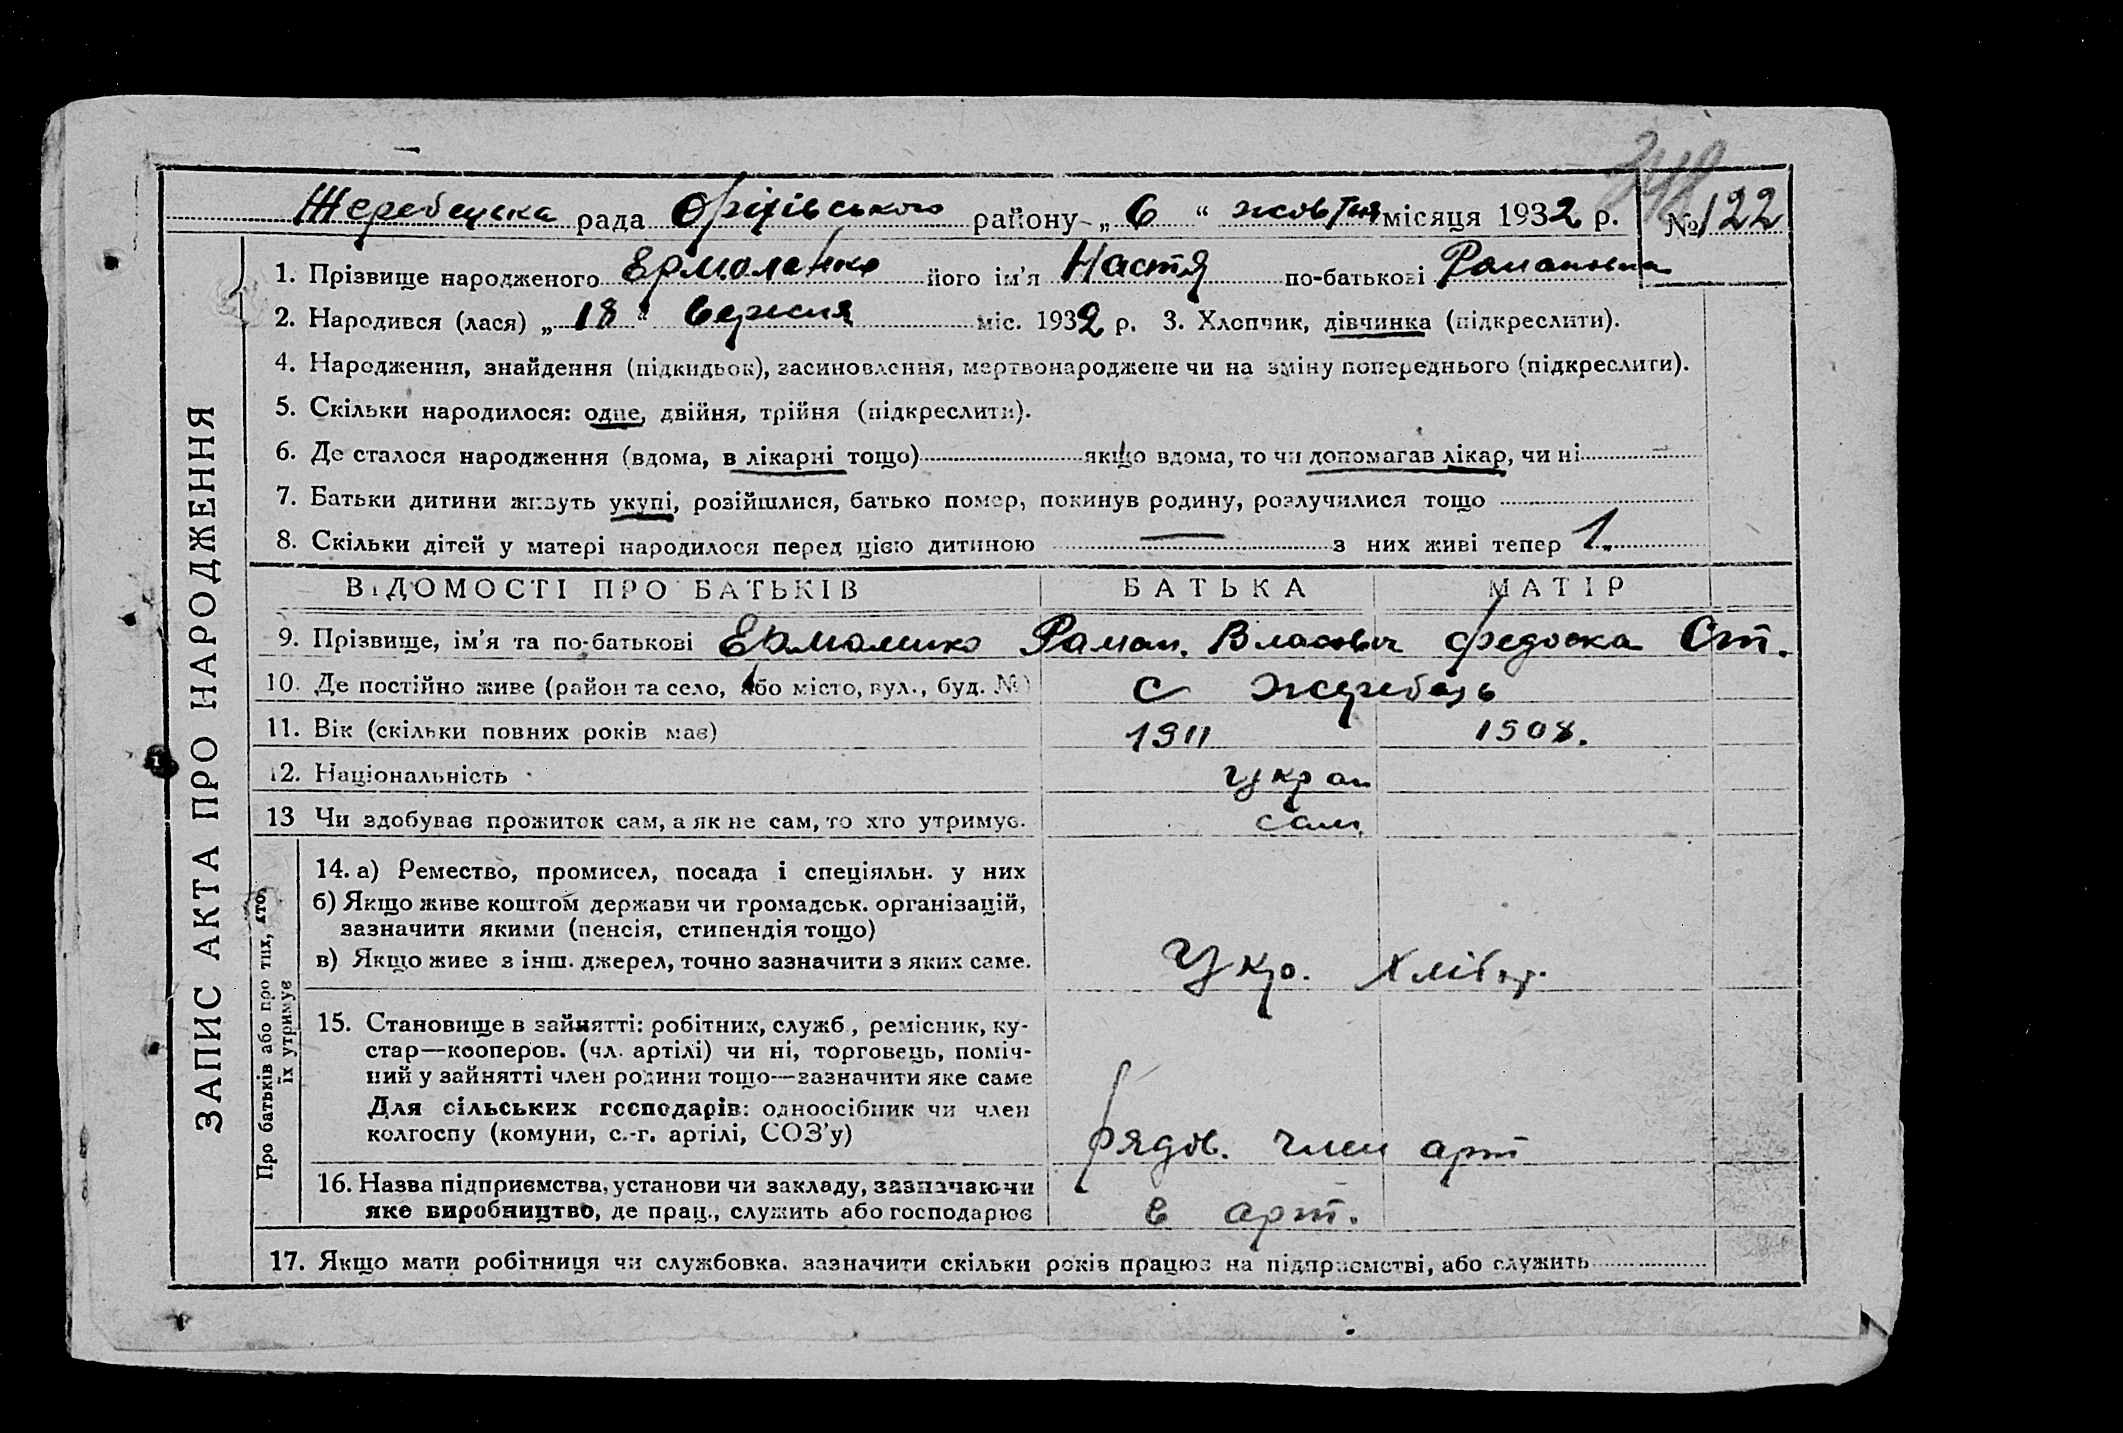 Жеребецька рада Оріхівського району „ 6 “ жовтня місяця 1932 р. № 122
1. Прізвище народженого Ермоленко його ім'я Настя по-батькові Романовна
2. Народився (лася) „ 18 “ Вересня міс. 1932 р. 3. Хлопчик, дівчинка (підкреслити).
4. Народження, знайдення (підкидьок), засиновлення, мертвонароджене чи на зміну попереднього (підкреслити).
5. Скільки народилося: одне, двійня, трійня (підкреслити).
6. Де сталося народження (вдома, в лікарні тощо) якщо вдома, то чи допомагав лікар, чи ні —
7. Батьки дитини живуть укупі, розійшлися, батько помер, покинув родину, розлучилися тощо
8. Скільки дітей у матері народилося перед цією дитиною — з них живі тепер 1.
ВІДОМОСТІ ПРО БАТЬКІВ БАТЬКА МАТІР
9. Прізвище, ім'я та по-батькові Роман. Власович Федоска Ст.
10. Де постійно живе (район та село, або місто, вул., буд. №) с Жеребець
11. Вік (скільки повних років має) 1911 1908.
12. Національність украи
13 Чи здобував прожиток сам, а як не сам, то хто утримує. сам.
ЗАПИС АКТА ПРО НАРОДЖЕННЯ
Про батьків або про тих, хто їх утримує
14. а) Ремество, промисел, посада і спеціяльн. у них
б) Якщо живе коштом держави чи громадськ. організацій,
зазначити якими (пенсія, стипендія тощо)
в) Якщо живе з інш. джерел, точно зазначити з яких саме. Укр.
15. Становище в зайнятті: робітник, служб., ремісник, ку-
стар—кооперов. (чл. артілі) чи ні, торговець, поміч-
ний у зайнятті член родини тощо—зазначити яке саме
Для сільських господарів: одноосібник чи член
колгоспу (комуни, с.-г. артілі, СОЗ'у) рядов. член арт
16. Назва підприємства, установи чи закладу, зазначаючи
яке виробництво, де прац., служить або господарює в арт.
17. Якщо мати робітниця чи службовка, зазначити скільки років працює на підприємстві, або служить